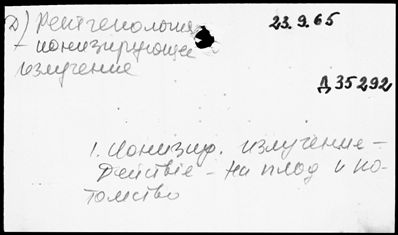 Д) Рентгенология
- ионизирующее
излучение
23.9.65
Д 35292
1. Ионизир. излучение -
Действие - на плод и по-
томство